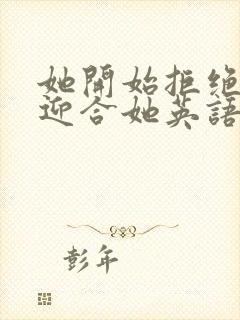 她開始拒绝
迎合她英語
彭年